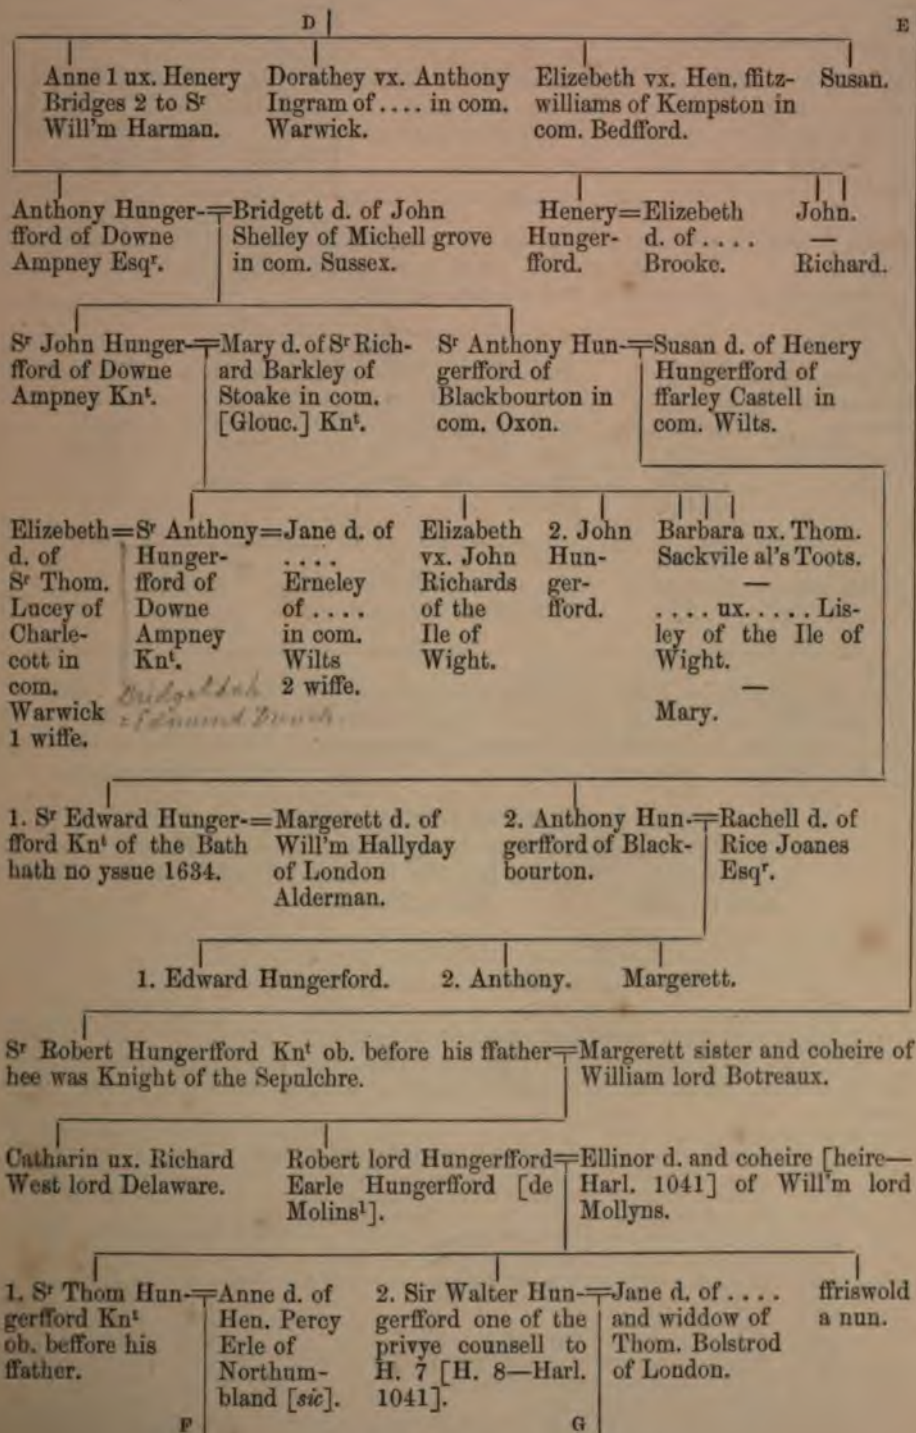 D E
Anne 1 ux. Henery
Bridges 2 to Sʳ
Will'm Harman.
Dorathey vx. Anthony
Ingram of .... in com.
Warwick.
Elizebeth vx. Hen. ffitz-
williams of Kempston in
com. Bedfford.
Susan.
Anthony Hunger-
fford of Downe
Ampney Esqʳ.
Bridgett d. of John
Shelley of Michell grove
in com. Sussex.
Henery
Hunger-
fford.
= Elizebeth
d. of ....
Brooke.
John.
—
Richard.
Sʳ John Hunger-
fford of Downe
Ampney Knᵗ.
Mary d. of Sʳ Rich-
ard Barkley of
Stoake in com.
[Glouc.] Knᵗ.
Sʳ Anthony Hun-
gerfford of
Blackbourton in
com. Oxon.
Susan d. of Henery
Hungerfford of
ffarley Castell in
com. Wilts.
Elizebeth
d. of
Sʳ Thom.
Lucey of
Charle-
cott in
com.
Warwick
1 wiffe.
= Sʳ Anthony
Hunger-
fford of
Downe
Ampney
Knᵗ.
Bridget
= Edmund
= Jane d. of
....
Erneley
of ....
in com.
Wilts
2 wiffe.
Elizabeth
vx. John
Richards
of the
Ile of
Wight.
2. John
Hun-
ger-
fford.
Barbara ux. Thom.
Sackvile al's Toots.
—
.... ux. .... Lis-
ley of the Ile of
Wight.
—
Mary.
1. Sʳ Edward Hunger-
fford Knᵗ of the Bath
hath no yssue 1634.
= Margerett d. of
Will'm Hallyday
of London
Alderman.
2. Anthony Hun-
gerfford of Black-
bourton.
Rachell d. of
Rice Joanes
Esqʳ.
1. Edward Hungerford.
2. Anthony.
Margerett.
Sʳ Robert Hungerfford Knᵗ ob. before his ffather
hee was Knight of the Sepulchre.
Margerett sister and coheire of
William lord Botreaux.
Catharin ux. Richard
West lord Delaware.
Robert lord Hungerfford
Earle Hungerfford [de
Molins¹].
Ellinor d. and coheire [heire—
Harl. 1041] of Will'm lord
Mollyns.
1. Sʳ Thom Hun-
gerfford Knᵗ
ob. beffore his
ffather.
Anne d. of
Hen. Percy
Erle of
Northum-
bland [sic].
2. Sir Walter Hun-
gerfford one of the
privye counsell to
H. 7 [H. 8—Harl.
1041].
Jane d. of ....
and widdow of
Thom. Bolstrod
of London.
ffriswold
a nun.
F G